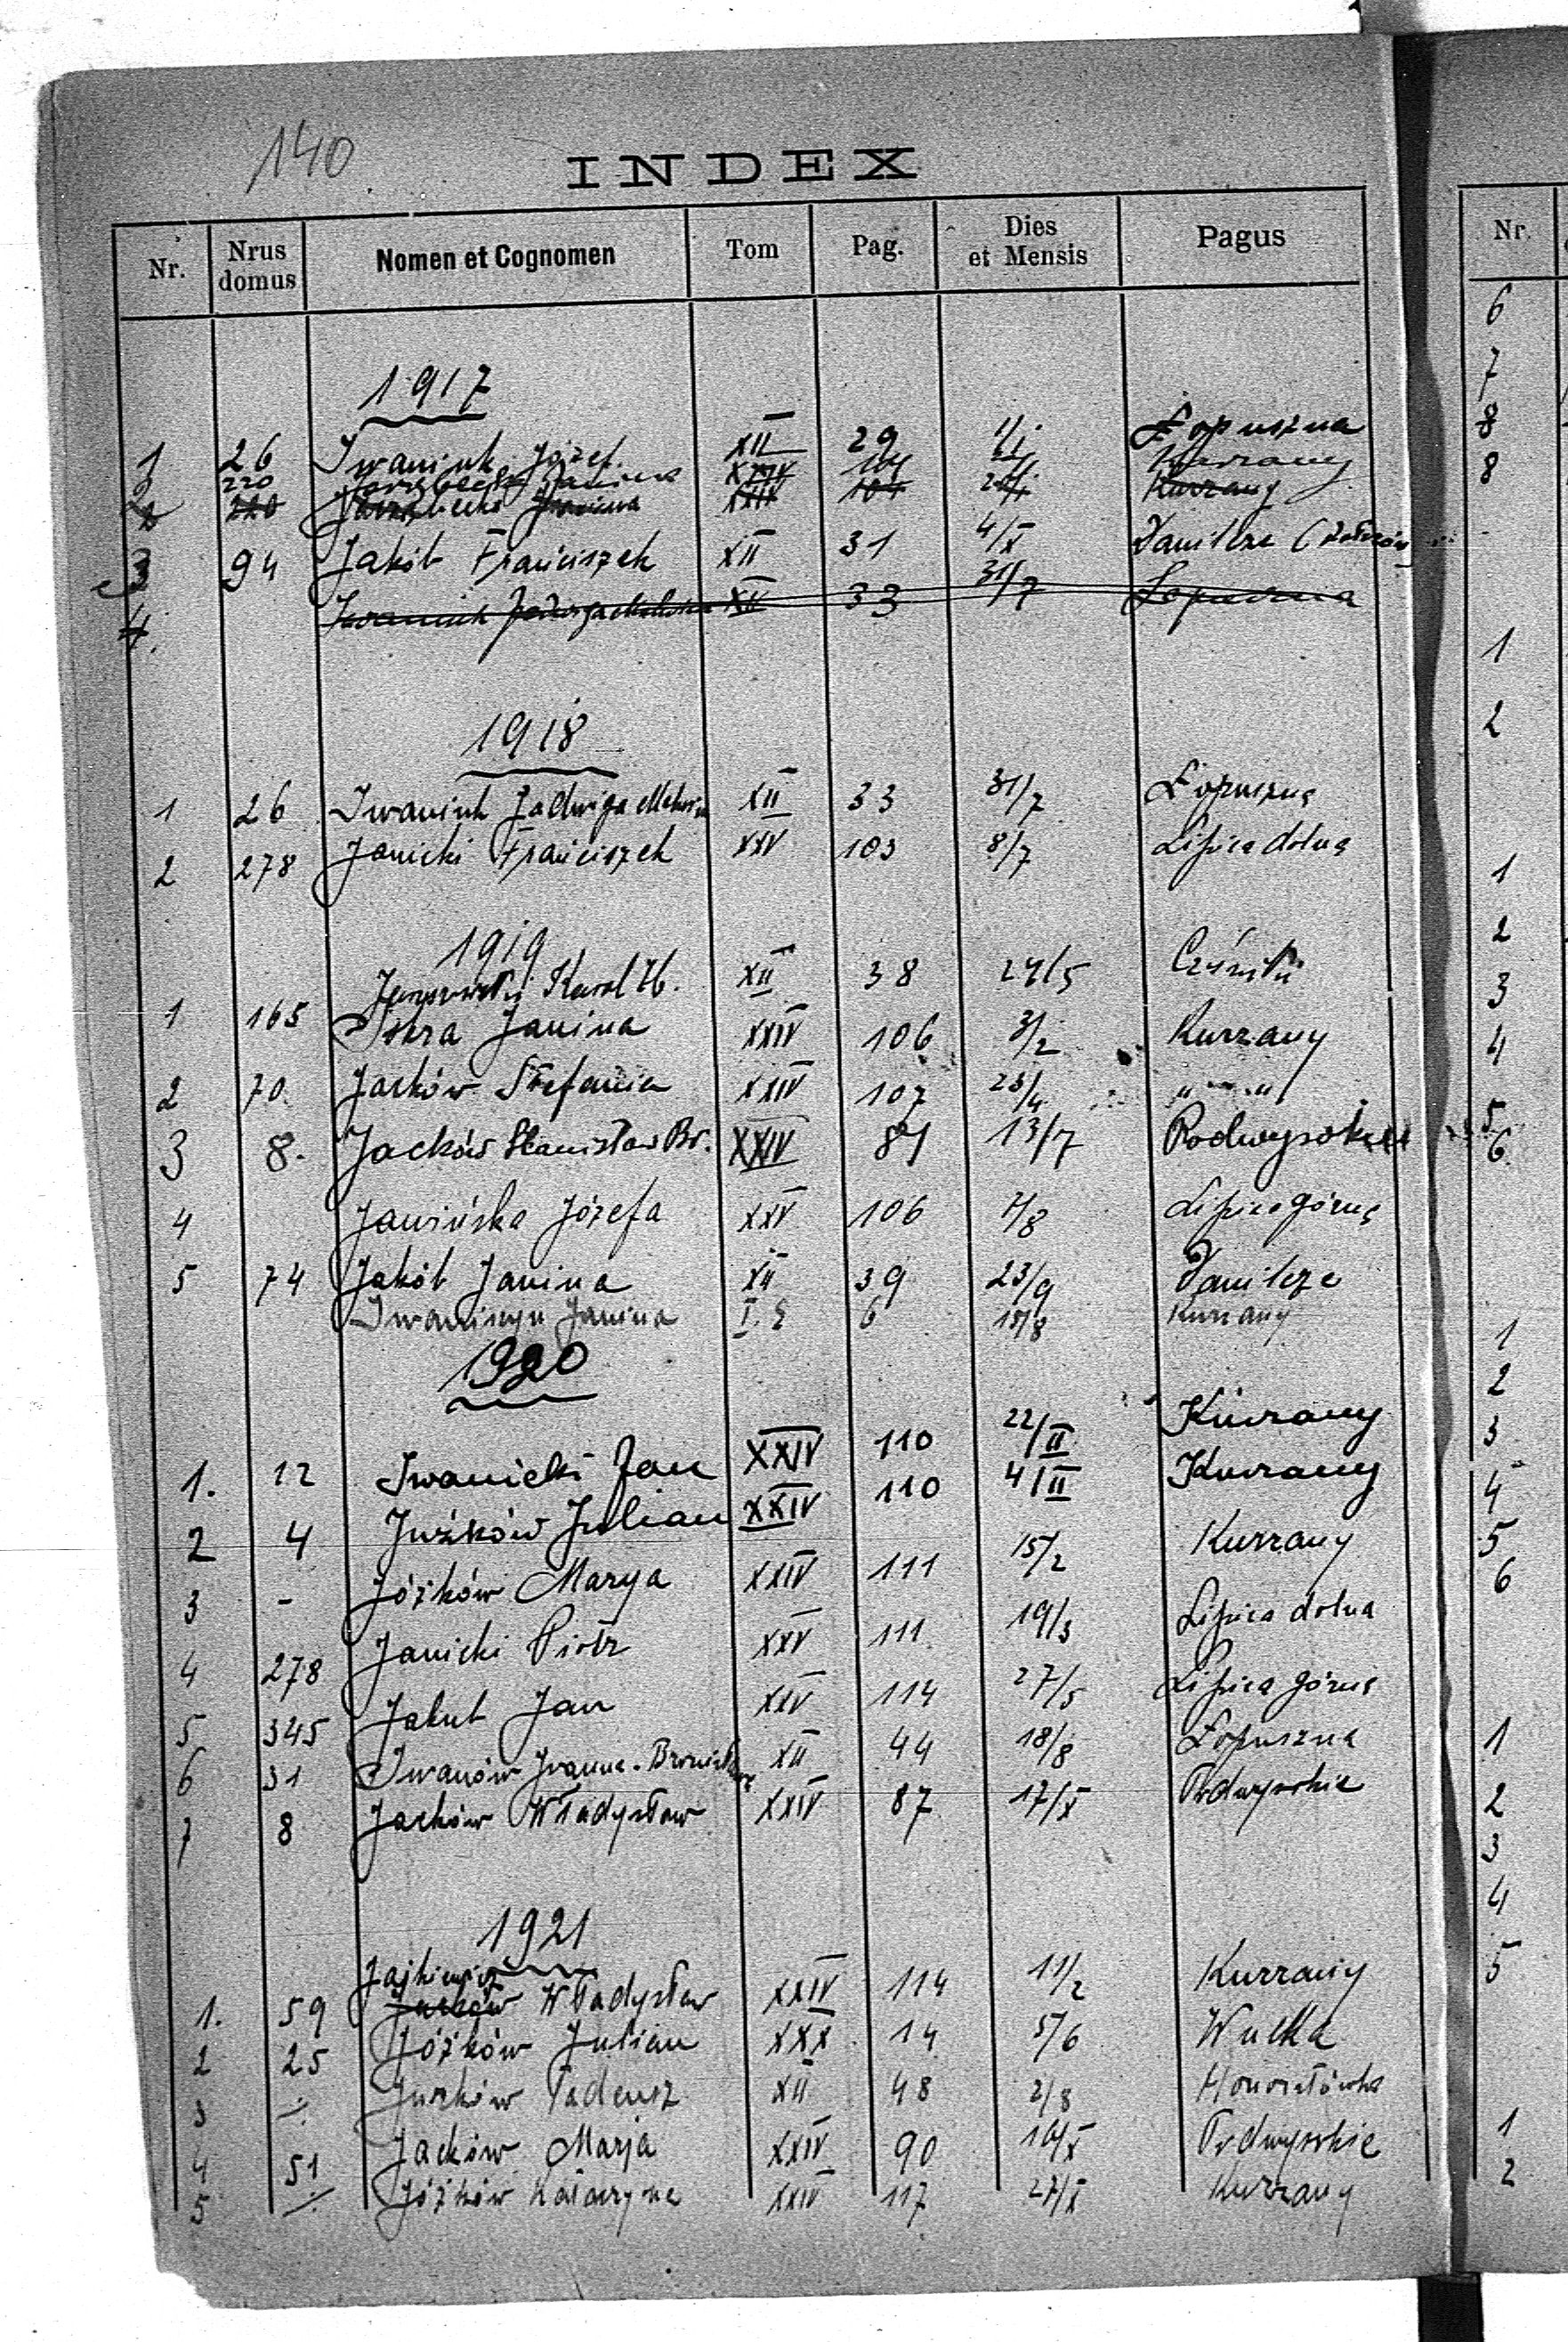 140
INDEX
Nr. Nrus domus Nomen et Cognomen Tom Pag. Dies et Mensis Pagus Nr.
1917
1 26 Iwaniuk Józef XII 29 1/1 Łopuszna
2 220 Janina XXIV 104 Kurzany
2 220 Janina XXIV 104 Kurzany
3 94 Jakób Franciszek XII 31 4/X Danilcze
4. Iwaniuk Jadwiga XII 33 31/7 Łopuszna
1918
1 26 Iwaniuk Jadwiga XII 33 31/7 Łopuszna
2 278 Janicki Franciszek XXV 103 8/7 Lipica dolna
1919
Karol XII 38 24/5
1 165 Iskra Janina XXIV 106 3/2 Kurzany
2 70 Jacków Stefania XXIV 107 23/4 " "
3 8. Jacków Stanisław Br. XXIV 84 13/7 Podwysokie
4 Jawińska Józefa XXV 106 Lipica górna
5 74 Jakób Janina XII 39 23/9 Danilcze
Iwaniszyn Janina 6 18/8 Kurzany
1920
1. 12 Iwanicki Jan XXIV 110 22/II Kurzany
2 4 Juźków Julian XXIV 110 4/II Kurzany
3 - Jóżków Marya XXIV 111 15/2 Kurzany
4 278 Janicki Piotr XXV 111 19/3 Lipica dolna
5 345 Jakut Jan XXV 114 27/5 Lipica górna
6 31 Iwanów XII 44 18/8 Łopuszna
7 8 Jacków Władysław XXIV 87 17/X Podwysokie
1921
Jajkiewicz
1. 59 Jacków Władysław XXIV 114 11/2 Kurzany
2 25 Jóżków Julian XXX 14 5/6 Wulka
3 Jurków Tadeusz XII 48 2/8 Honoratówka
4 51 Jacków Marja XXIV 90 10/X Podwysokie
5 Jóżków Katarzyna XXIV 117 27/X Kurzany
6
7
8
8
1
2
1
2
3
4
5
6
1
2
3
4
5
6
1
2
3
4
5
1
2